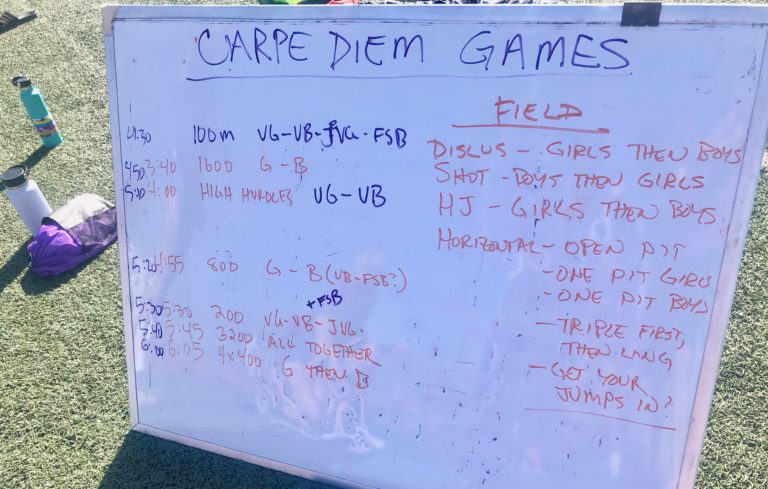 CARPE DIEM GAMES
4:30 100m VG-VB-JVG-FSB
4:50 3:40 1600 G-B
5:10 4:00 HIGH HURDLES VG-VB
5:20 4:55 800 G-B(VB-FSB?)
+FSB
5:30 5:30 200 VG-VB-JVG.
5:40 5:45 3200 ALL TOGETHER
6:00 6:05 4x400 G THEN B
FIELD
DISCUS - GIRLS THEN BOYS
SHOT - BOYS THEN GIRLS
HJ - GIRLS THEN BOYS.
HORIZONTAL - OPEN PIT
- ONE PIT GIRLS
- ONE PIT BOYS
- TRIPLE FIRST,
THEN LONG
- GET YOUR
JUMPS IN!